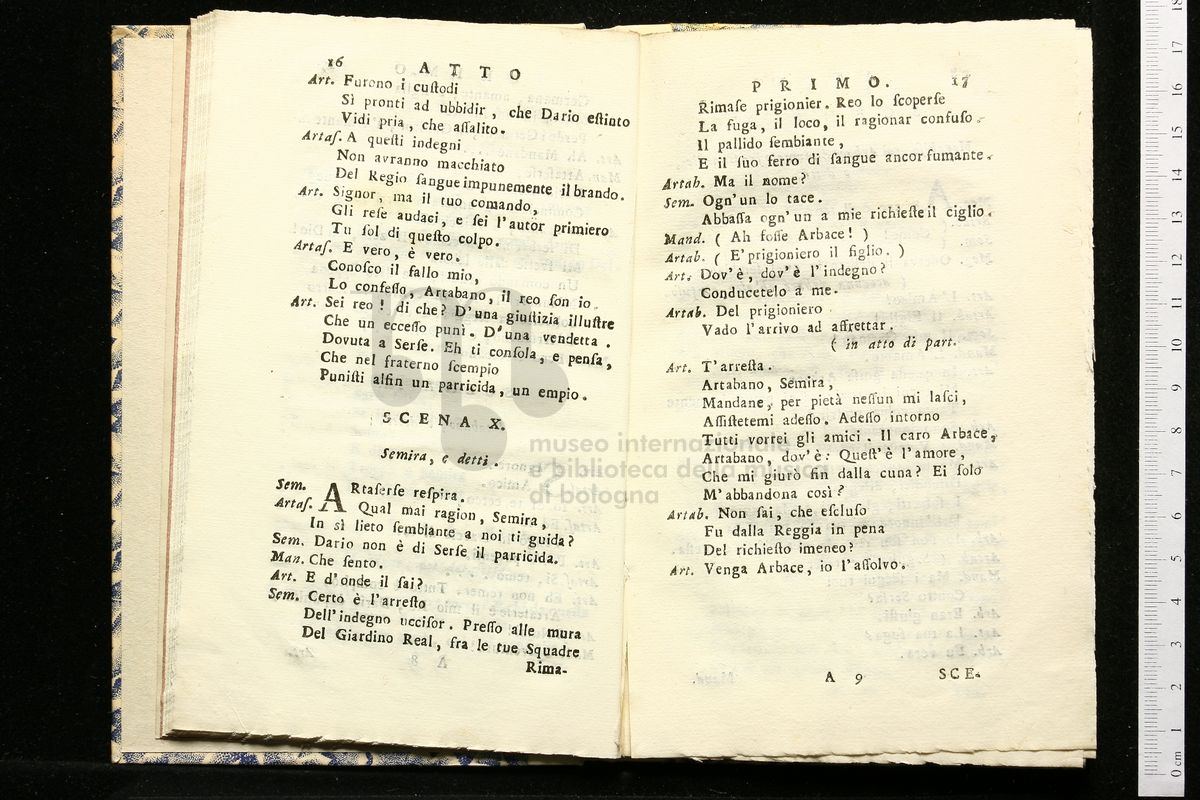 16
ATTO
Art. Furono i cuſtodi
Sì pronti ad ubbidir, che Dario eſtinto
Vidi pria, che aſſalito.
Artaſ. A queſti indegni
Non avranno macchiato
Del Regio ſangue impunemente il brando.
Art. Signor, ma il tuo comando,
Gli reſe audaci, e ſei l'autor primiero
Tu ſol di queſto colpo.
Artaſ. E vero, è vero.
Conoſco il fallo mio,
Lo confeſſo, Artabano, il reo ſon io.
Art. Sei reo! di che? D'una giuſtizia illuſtre
Che un ecceſſo punì. D'una vendetta.
Dovuta a Serſe. Eh ti conſola, e penſa,
Che nel fraterno ſcempio
Puniſti alfin un parricida, un empio.
SCENA X.
Semira, e detti.
Sem. ARtaſerſe reſpira.
Artaſ. Qual mai ragion, Semira,
In sì lieto ſembiante a noi ti guida?
Sem. Dario non è di Serſe il parricida.
Man. Che ſento.
Art. E d'onde il ſai?
Sem. Certo è l'arreſto
Dell'indegno ucciſor. Preſſo alle mura
Del Giardino Real, fra le tue Squadre
A 8
Rima-
PRIMO.
17
Rimaſe prigionier. Reo lo ſcoperſe
La fuga, il loco, il ragionar confuſo.
Il pallido ſembiante,
E il ſuo ferro di ſangue ancor fumante.
Artab. Ma il nome?
Sem. Ogn'un lo tace.
Abbaſſa ogn'un a mie richieſte il ciglio.
Mand. ( Ah foſſe Arbace! )
Artab. ( E' prigioniero il figlio. )
Art. Dov'è, dov'è l'indegno?
Conducetelo a me.
Artab. Del prigioniero
Vado l'arrivo ad affrettar.
( in atto di part.
Art. T'arreſta.
Artabano, Semira,
Mandane, per pietà neſſun mi laſci,
Aſſiſtetemi adeſſo. Adeſſo intorno
Tutti vorrei gli amici. Il caro Arbace,
Artabano, dov'è: Queſt'è l'amore,
Che mi giurò fin dalla cuna? Ei ſolo
M'abbandona così?
Artab. Non ſai, che eſcluſo
Fu dalla Reggia in pena
Del richieſto imeneo?
Art. Venga Arbace, io l'aſſolvo.
A 9
SCE-
museo internazionale
e biblioteca della musica
di bologna
0 cm 1 2 3 4 5 6 7 8 9 10 11 12 13 14 15 16 17 18